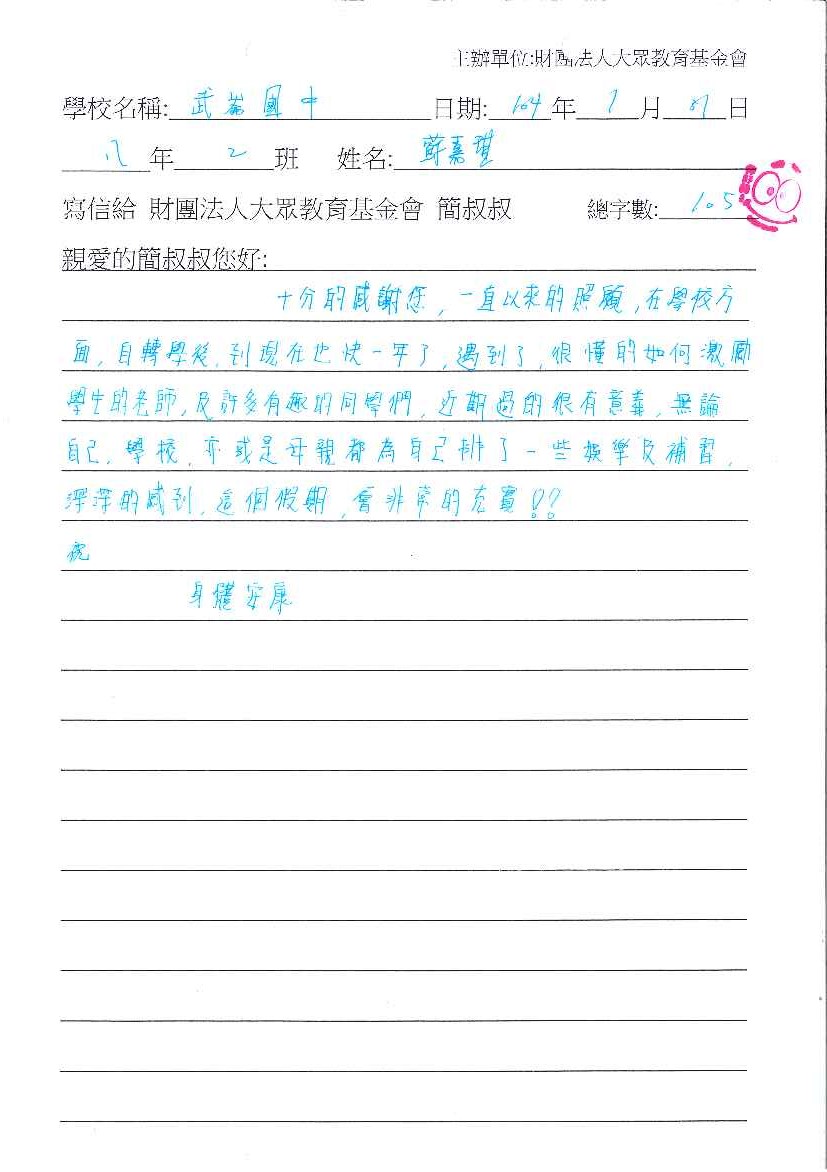 主辦單位:財團法人大眾教育基金會
學校名稱: 武崙國中 日期: 104 年 7 月 日
八 年 2 班 姓名: 蘇嘉琪
寫信給 財團法人大眾教育基金會 簡叔叔 總字數: 105
親愛的簡叔叔您好:
十分的感謝您,一直以來的照顧,在學校方
面,自轉學後,到現在也快一年了,遇到了,很懂的如何激勵
學生的老師,及許多有趣的同學們,近期過的很有意義,無論
自己,學校,亦或是母親都為自己排了一些娛樂及補習,
深深的感到,這個假期,會非常的充實!!
祝
身體安康